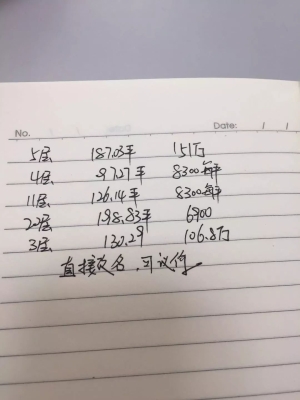 No.
Date: / /
5层 187.03平 151万
4层 97.27平 8300每平
11层 126.14平 8300每平
22层 198.83平 6900
3层 130.29 106.8万
直接改名,可议价